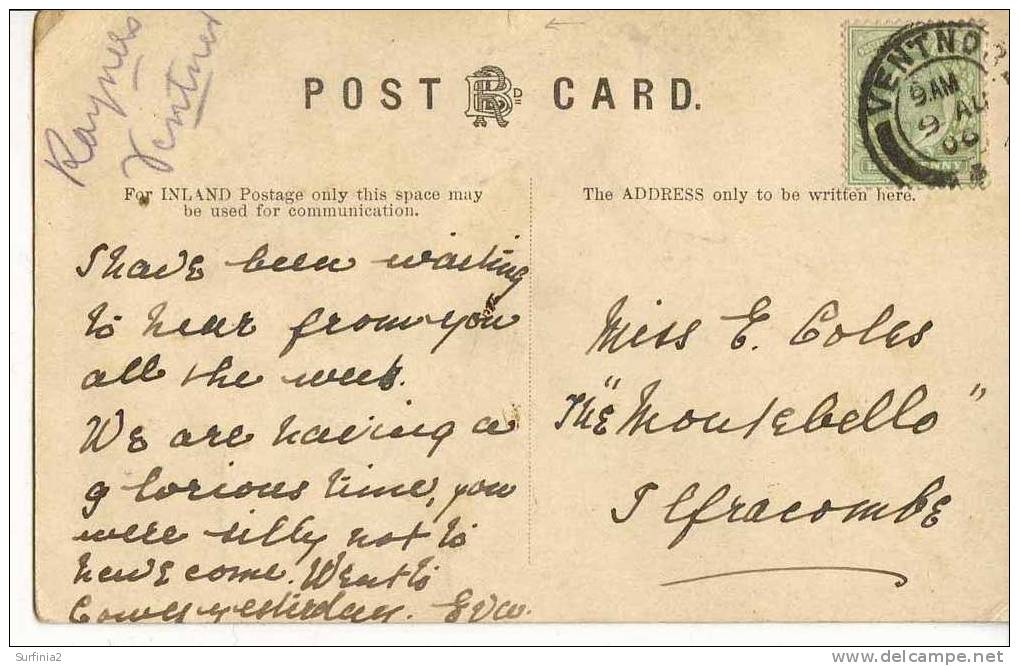 Raynes
Ventnor
POST CARD.
VENTNOR
9.AM
9 AU
06
For INLAND Postage only this space may
be used for communication.
The ADDRESS only to be written here.
I have been waiting
to hear from you
all the week.
We are having a
glorious time, you
were silly not to
have come. Went to
Cowes yesterday. Eva.
Miss E. Coles
The "Montebello"
Ilfracombe
Surfinia2
delcampe.net